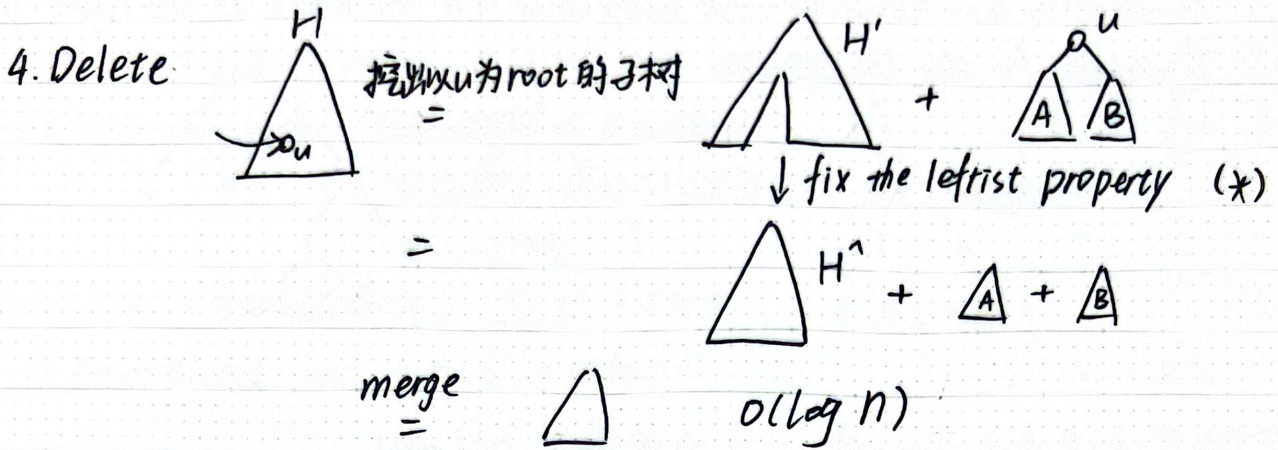 4. Delete
H
u
挖出以u为root的子树
=
H'
+
u
A
B
↓ fix the leftist property (*)
=
H^ + A + B
merge
=
O(log n)